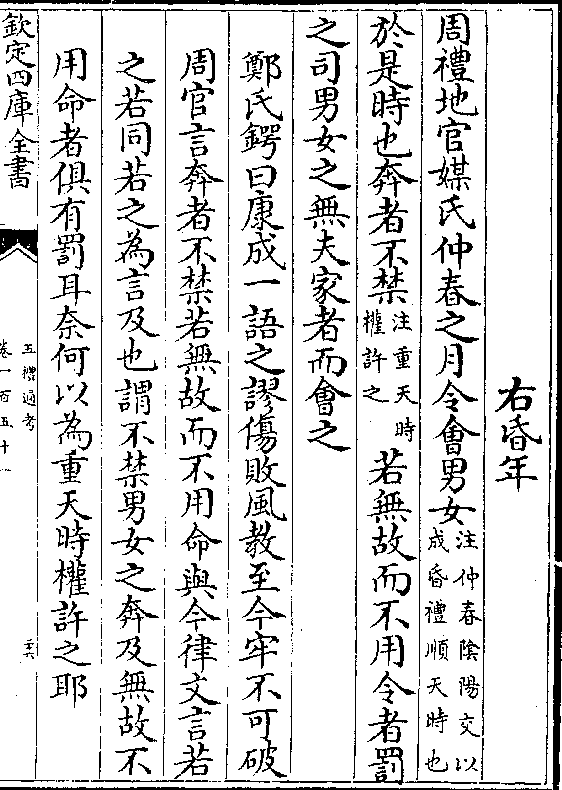 右昏年
周禮地官媒氏仲春之月令會男女注仲春陰陽交以成昏禮順天時也
於是時也奔者不禁注重天時權許之若無故而不用令者罰
之司男女之無夫家者而會之
鄭氏鍔曰康成一語之謬傷敗風教至今牢不可破
周官言奔者不禁若無故而不用命與今律文言若
之若同若之為言及也謂不禁男女之奔及無故不
用命者俱有罰耳奈何以為重天時權許之耶
欽定四庫全書
五禮通考
卷一百五十一
二六